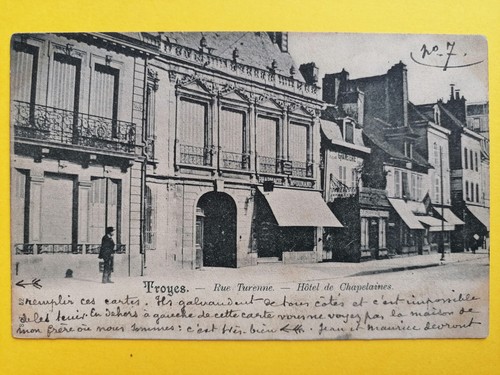 no 7
PHARMACIE POINSARD
Troyes. — Rue Turenne. — Hôtel de Chapelaines.
remplir ces cartes. Ils galvaudent de tous côtés et c'est impossible
de les tenir. en dehors à gauche de cette carte vous ne voyez pas la maison de
mon frère où nous sommes: c'est très bien Jean et Maurice devront